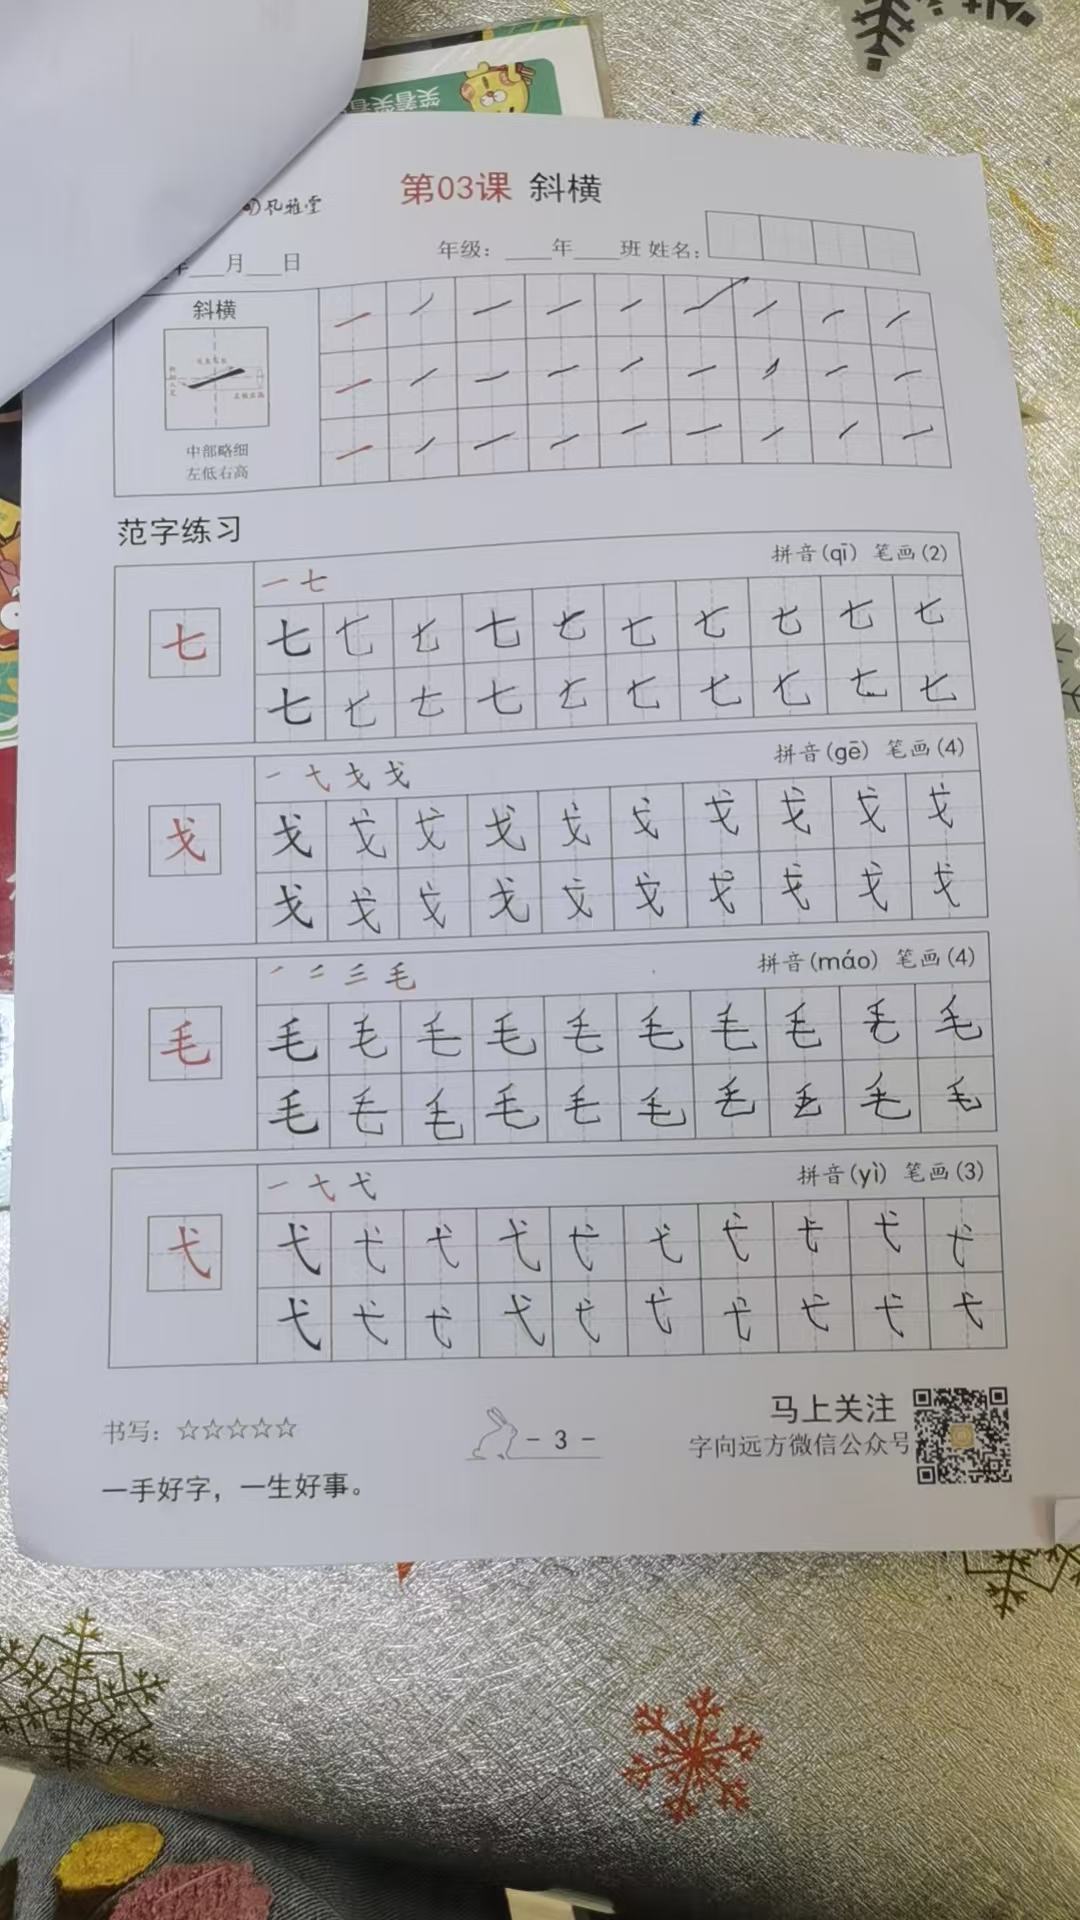 笑着笑着
风雅堂
第03课 斜横
年___月___日 年级：____年____班 姓名：
斜横
中部略细
左低右高
范字练习
拼音(qī) 笔画(2)
一 七
七 七 七 七 七 七 七 七 七 七 七
七 七 七 七 七 七 七 七 七 七
拼音(gē) 笔画(4)
一 弋 戈 戈
戈 戈 戈 戈 戈 戈 戈 戈 戈 戈 戈
戈 戈 戈 戈 戈 戈 戈 戈 戈 戈
拼音(máo) 笔画(4)
毛
毛 毛 毛 毛 毛 毛 毛 毛 毛 毛 毛
毛 毛 毛 毛 毛 毛 毛 毛 毛 毛
拼音(yì) 笔画(3)
一 弋
弋 弋 弋 弋 弋 弋 弋 弋 弋 弋 弋
弋 弋 弋 弋 弋 弋 弋 弋 弋 弋
书写：☆☆☆☆☆
一手好字，一生好事。
- 3 -
马上关注
字向远方微信公众号